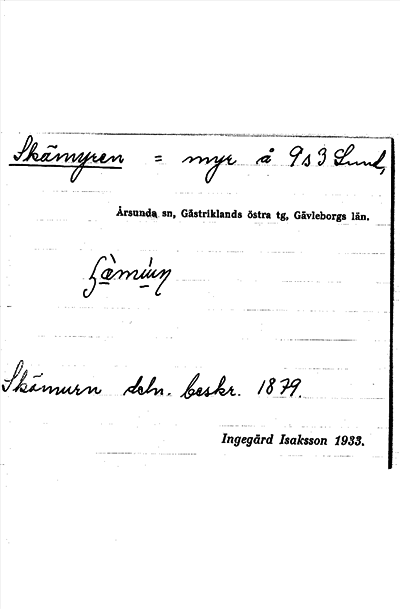 Skämyren = myr å 9s3 Sund,
Årsunda sn, Gästriklands östra tg, Gävleborgs län.
Skämurn deln. beskr. 1879.
Ingegärd Isaksson 1933.